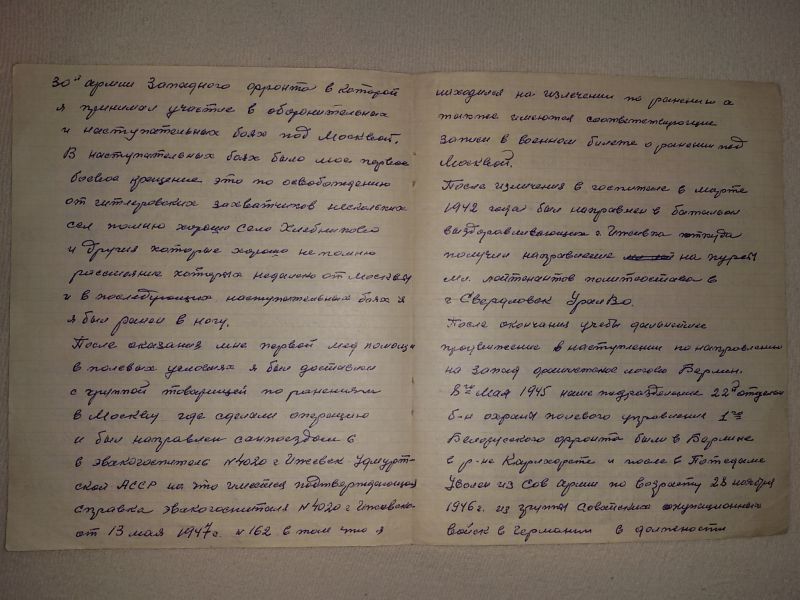 30й армии Западного фронта в которой
я принимал участие в оборонительных
и наступательных боях под Москвой.
В наступательных боях было мое первое
боевое крещение это по освобождению
от гитлеровских захватчиков нескольких
сел помню хорошо село Хлебниково
и другия которые хорошо не помню
рассияние которых недалеко от Москвы
и в последующих наступательных боях я
я был ранен в ногу.
После оказания мне первой мед помощи
в полевых условиях я был доставлен
с группой товарищей по ранениям
в Москву где сделали операцию
и был направлен санпоездом в
в эвакогоспиталь №4020 г Ижевск Удмурт-
ской АССР на это имеется подтверждающая
справка эвакогоспиталя №4020 г Ижевска
от 13 мая 1947г. №162 в том что я
находился на излечении по ранению а
также имеются соответствующие
записи в военном билете о ранении под
Москвой.
После излечения в госпитале в марте
1942 года был направлен в батальон
выздоравливающих г. Ижевка откуда
получил направление на курсы
мл. лейтенантов политсостава в
г Свердловск УралВо.
После окончания учебы дальнейшие
продвижение в наступлении по направлению
на запад фашистское логово Берлин.
Мая 1945 наше подразделение 22й отдельн
б-н охраны полевого управления 1го
Белорусского фронта были в Берлине
в р-не Карлхорста и после в Потсдаме
Уволен из Сов Армии по возрасту 28 ноября
1946г. из группы Советских окупационных
войск в Германии в должности